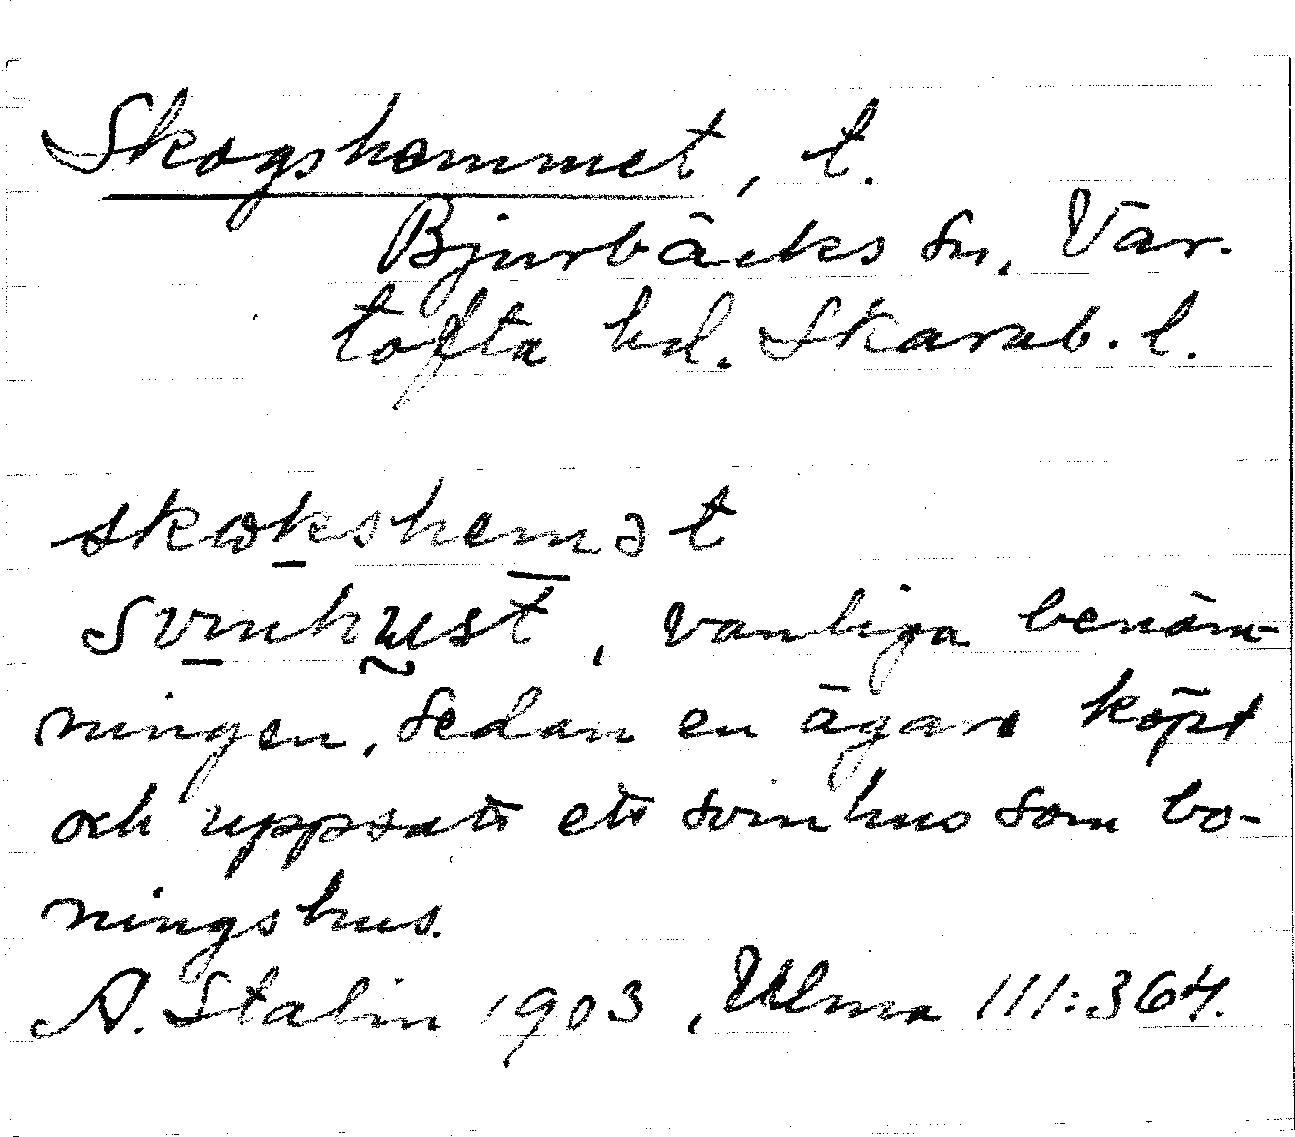 Skogshemmet, t.
Bjurbäcks sn, Var-
tofta hd. Skarab. l.
skωkshemət
Svinhust, vanliga benäm-
ningen, sedan en ägare köpt
och uppsatt ett svinhus som bo-
ningshus.
A. Stalin 1903, Ulma 111:364.